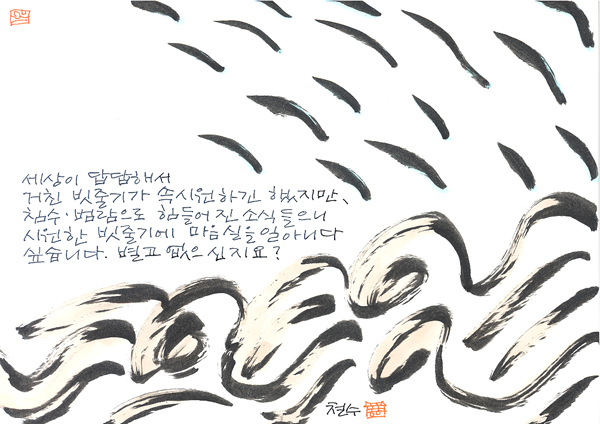 세상이 답답해서
거친 빗줄기가 속시원하긴 했지만,
침수·범람으로 힘들어 진 소식 들으니
시원한 빗줄기에 마음 실을 일 아니다
싶습니다. 별고 없으신지요?
철수